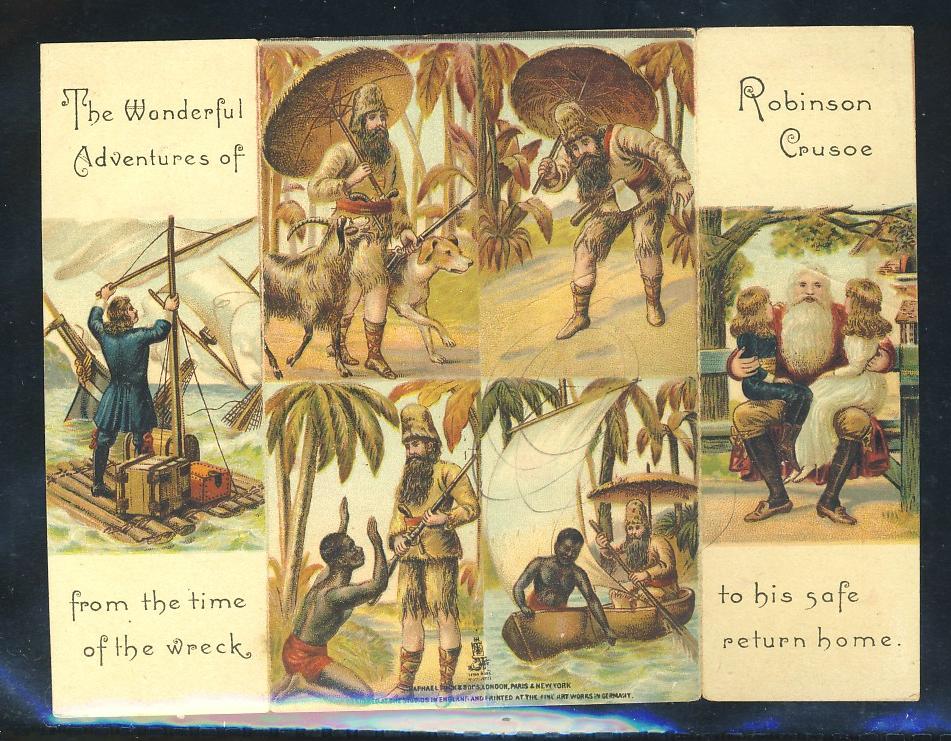 The Wonderful
Adventures of
Robinson
Crusoe
from the time
of the wreck,
to his safe
return home.
RAPHAEL TUCK & SONS, LONDON, PARIS & NEW YORK
STUDIOS IN ENGLAND AND PRINTED AT THE FINE ART WORKS IN GERMANY.